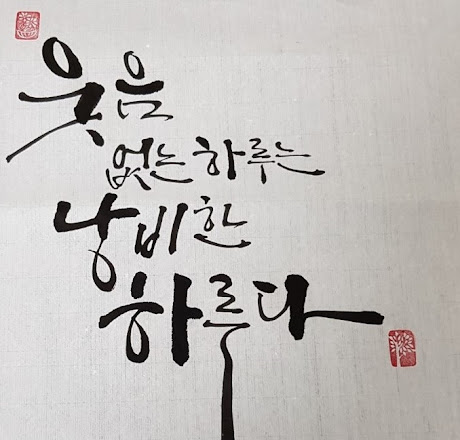 웃음
없는 하루는
낭비한
하루다